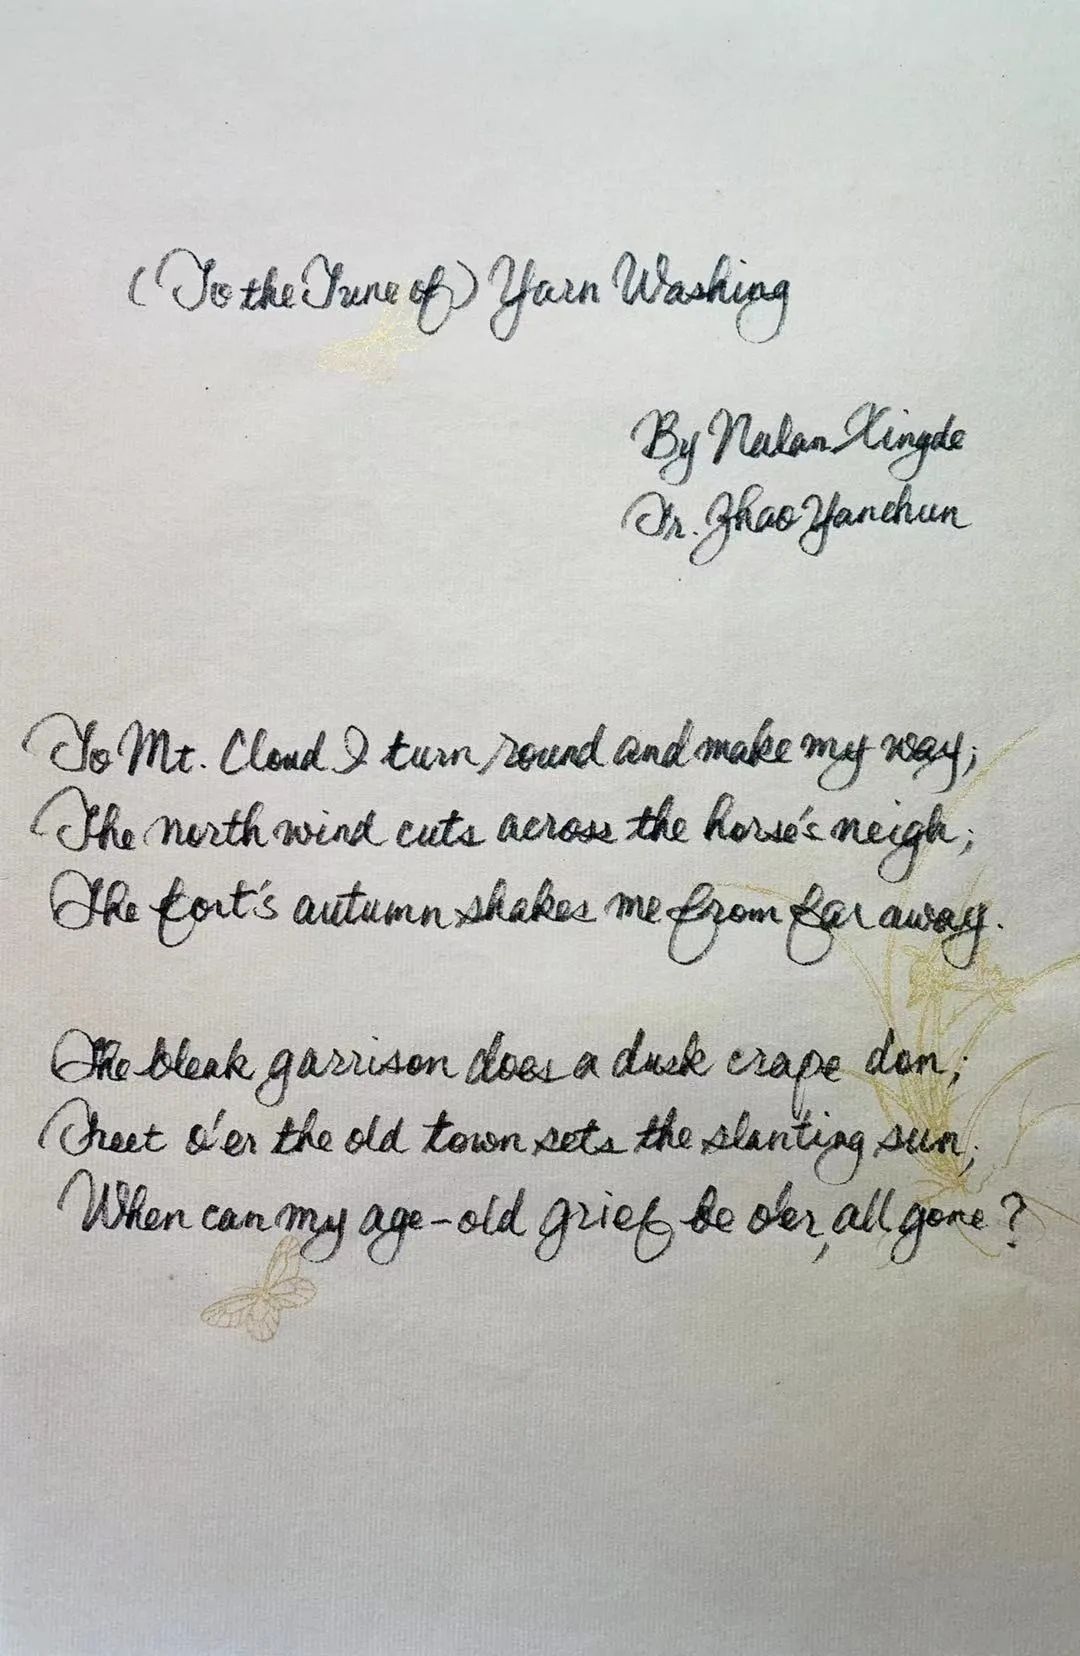 (To the Tune of) Yarn Washing
By Nalan Xingde
Tr. Zhao Yanchun
To Mt. Cloud I turn round and make my way;
The north wind cuts across the horse's neigh;
The fort's autumn shakes me from far away.
The bleak garrison does a dusk crape don;
Freet o'er the old town sets the slanting sun;
When can my age-old grief be o'er, all gone?